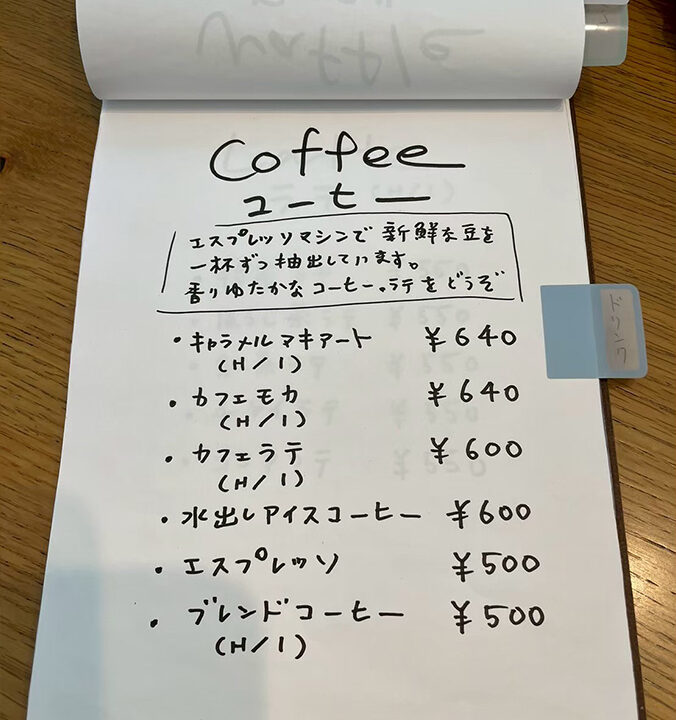 Waffle
Coffee
コーヒー
エスプレッソマシンで 新鮮な豆を
一杯ずつ抽出しています。
香りゆたかな コーヒー、ラテをどうぞ
・キャラメルマキアート ¥640
(H/I)
・カフェモカ ¥640
(H/I)
・カフェラテ ¥600
(H/I)
・水出しアイスコーヒー ¥600
・エスプレッソ ¥500
・ブレンドコーヒー ¥500
(H/I)
ドリンク